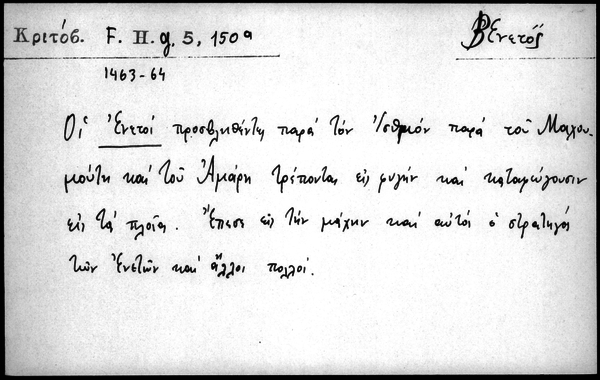 Κριτόβ. F. H. g. 5, 150α
Βενετός
1463-64
Οἱ Ἐνετοί προσβληθέντες παρά τόν Ἰσθμόν παρά τοῦ Μαχου-
μούτη καί τοῦ Ἀμάρη τρέπονται εἰς φυγήν καί καταφεύγουσιν
εἰς τά πλοῖα. Ἔπεσε εἰς τήν μάχην καί αὐτός ὁ στρατηγός
τῶν Ἐνετῶν καί ἄλλοι πολλοί.